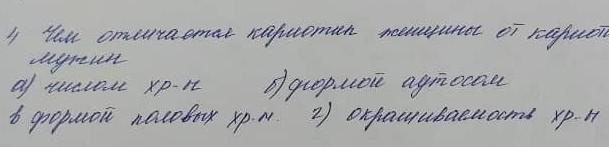 4) Чем отличается кариотип женщины от кариот
мужчин
а) числом хр-н б) формой аутосом
в формой половых хр-н. г) окрашиваемость хр-н